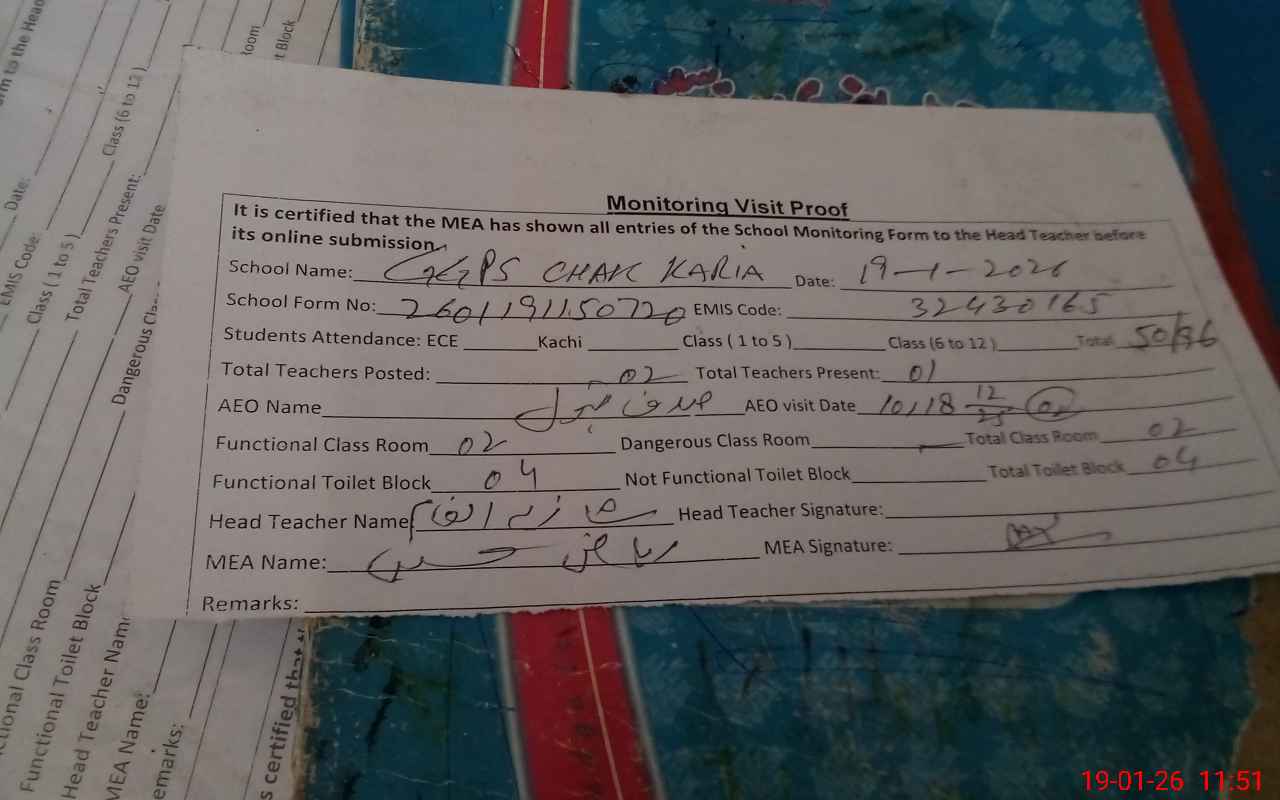 Monitoring Visit Proof
It is certified that the MEA has shown all entries of the School Monitoring Form to the Head Teacher before
its online submission
School Name: GGPS CHAK KARIA Date: 19-1-2026
School Form No: 2601191150720 EMIS Code: 32430165
Students Attendance: ECE Kachi Class ( 1 to 5 ) Class (6 to 12 ) Total 50/36
Total Teachers Posted: 02 Total Teachers Present: 01
AEO Name AEO visit Date 10,18 12/25 02
Functional Class Room 02 Dangerous Class Room Total Class Room 02
Functional Toilet Block 04 Not Functional Toilet Block Total Toilet Block 04
Head Teacher Name Head Teacher Signature:
MEA Name: ریاض حسین MEA Signature:
Remarks:
EMIS Code: Date:
Class ( 1 to 5 ) Class (6 to 12 )
Total Teachers Present:
AEO visit Date
Dangerous
Functional Class Room
Functional Toilet Block
Head Teacher
MEA Name:
certified that
19-01-26 11:51